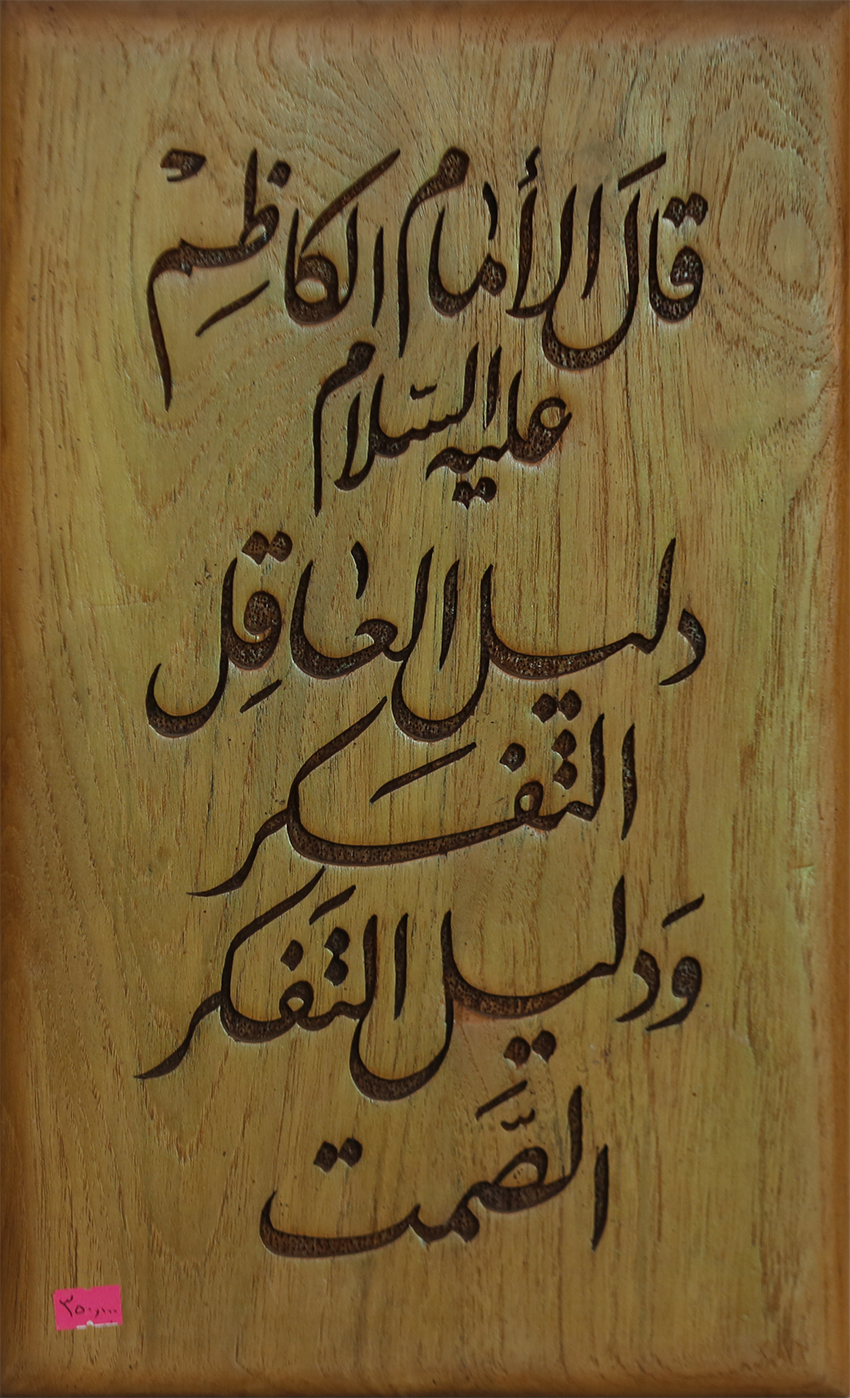 قالَ الأمام الكاظِمْ
عليه السّلام
دليل العاقِل
التفكر
وَدليل التَفكر
الصَّمت
۳۵۰،۰۰۰